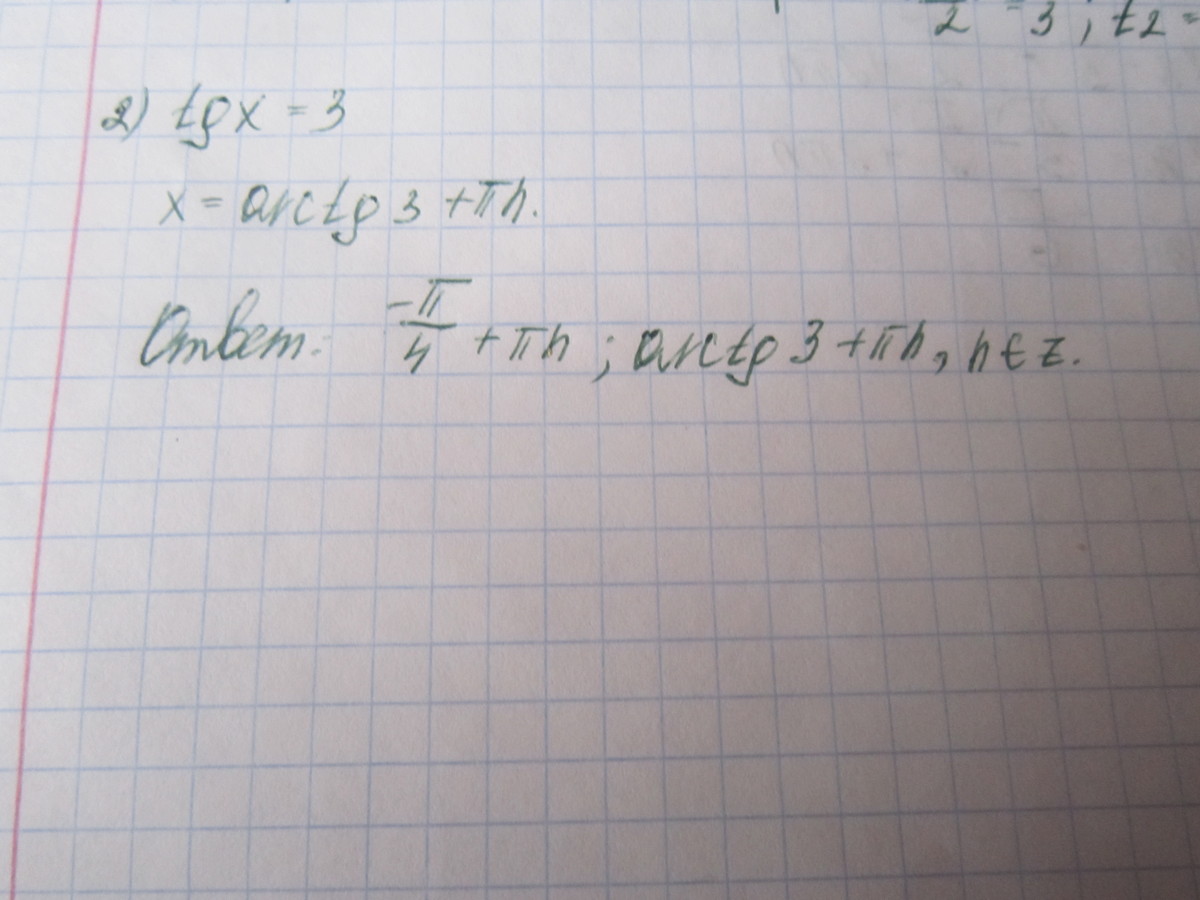 2 = 3 ; t2 =
2) tgx = 3
x = arctg 3 + πn.
Ответ: -π/4 + πn ; arctg 3 + πn, n ∈ Z.